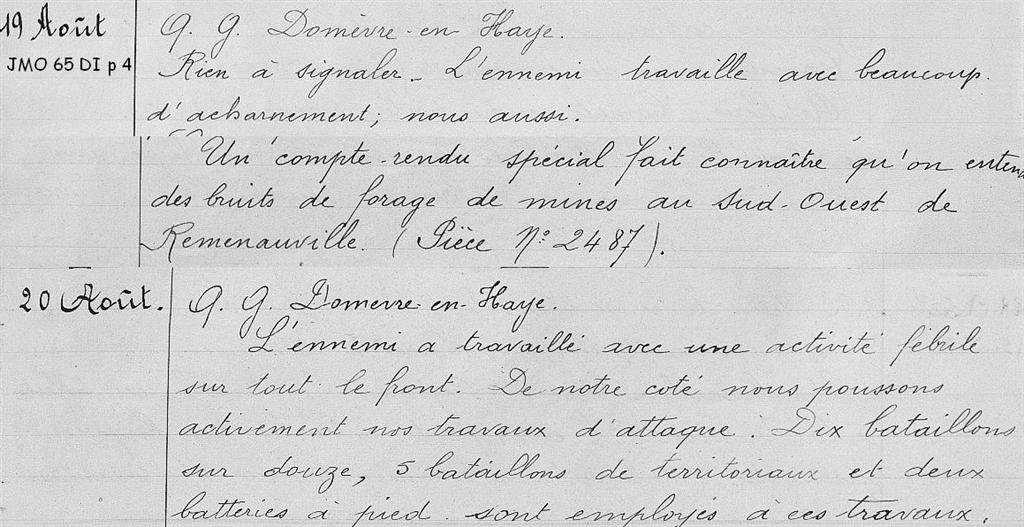 19 Août
JMO 65 DI p 4
Q. G. Domèvre-en-Haye.
Rien à signaler - L'ennemi travaille avec beaucoup
d'acharnement; nous aussi.
Un compte-rendu spécial fait connaître qu'on enten
des bruits de forage de mines au Sud-Ouest de
Remenauville. (Pièce N° 2487).
20 Août.
Q. G. Domèvre-en-Haye.
L'ennemi a travaillé avec une activité fébrile
sur tout le front. De notre coté nous poussons
activement nos travaux d'attaque. Dix bataillons
sur douze, 5 bataillons de territoriaux et deux
batteries à pied sont employés à ces travaux.